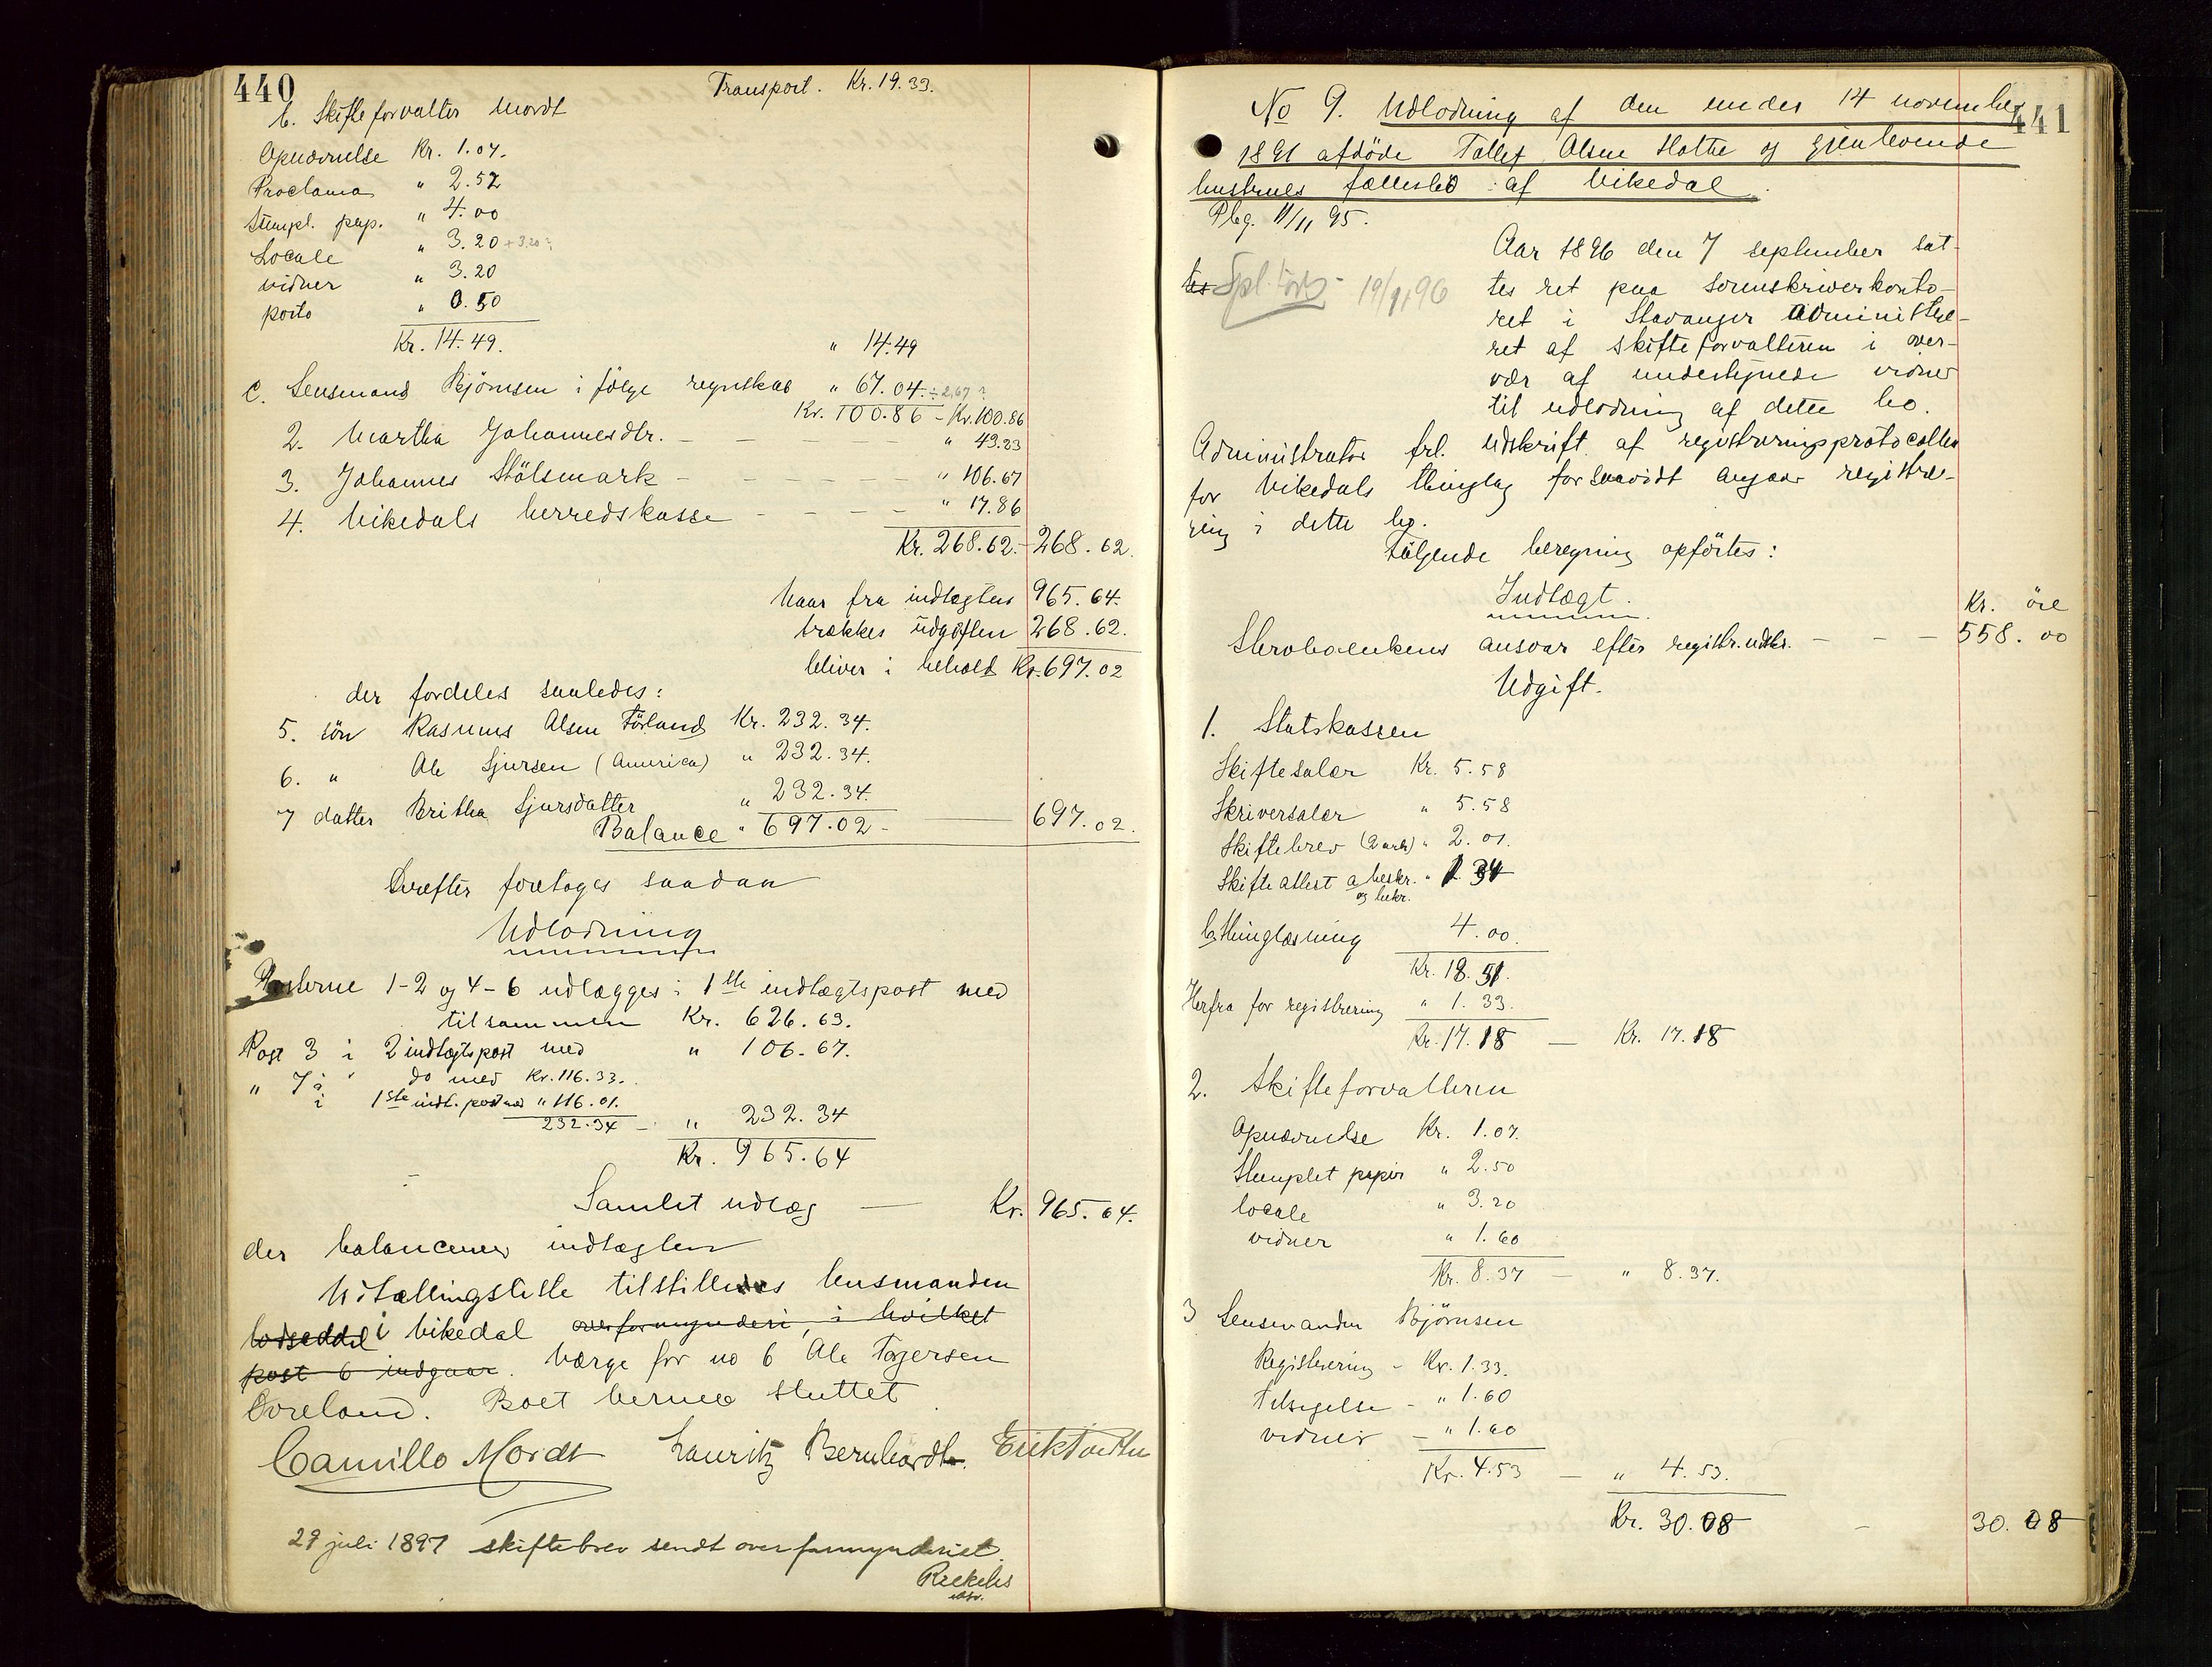 440
Transport. Kr. 19.33.
b. Skifteforvalter Mordt
Opnævnelse Kr. 1.07.
Proclama " 2.52
Stempl. pap. " 4.00
Locale " 3.20 + 3.20?
vidner " 3.20
porto " 0.50
Kr. 14.49. " 14.49
c. Lensmand Bjørnsen i følge regnskab " 67.04. ÷ 2.67?
Kr. 100.86 - Kr. 100.86
2. Martha Johannesdtr. - - - - " 49.23
3. Johannes Stølsmark - - - - - " 106.67
4. Vikedals herredskasse - - - - " 17.86
Kr. 268.62. - 268.62.
Naar fra indtægten 965.64.
trækkes udgiften 268.62.
bliver i behold Kr. 697.02
der fordeles saaledes:
5. søn Rasmus Olsen Førland Kr. 232.34.
6. " Ole Sjursen (America) " 232.34.
7 datter Britha Sjursdatter " 232.34.
Balance " 697.02 - 697.02.
Derefter foretoges saadan
Udlodning
Posterne 1-2 og 4-6 udlægges i 1ste indtægtspost med
tilsammen Kr. 626.63.
Post 3 i 2 indtægtspost med " 106.67.
" 7 i " do med Kr. 116.33.
i 1ste indt. post med " 116.01.
232.34 - " 232.34
Kr. 965.64
Samlet udlæg — Kr. 965.64.
der balancerer indtægten
Utællingsliste tilstilledes lensmanden
lodseddel i Vikedal overformynderi, i hvilket
post 6 indgaar. Værge for no 6 Ole Torgersen
Øvreland. Boet hermed sluttet.
Camillo Mordt Lauritz Bernhardt.
29 juli 1897 skiftebrev sendt overformynderiet.
441
No 9. Udlodning af den under 14 november
1891 afdöde Tollef Olsen Hatte og gjenlevende
hustrues fællesbo af Vikedal.
Pbg. 11/11 95.
Aar 1896 den 7 september sat-
tes ret paa sorenskriverkonto-
ret i Stavanger administre-
ret af skifteforvalteren i over-
vær af undertegnede vidner
til udlodning af dette bo.
19/9, 96
Administrator frl. udskrift af registreringsprotocollen
for Vikedals thinglag forsaavidt angaar registre-
ring i dette bo.
Følgende beregning opførtes:
Indtægt. Kr. öre
Skrobænkens ansvar efter registr.udskr. - - - 558.00
Udgift.
1. Statskassen
Skiftesalær Kr. 5.58
Skriversalær " 5.58
Skiftebrev (2 ark) " 2.01.
Skifteattest a beskr. " 1.34
og bekr.
b, thinglæsning 4.00.
Kr. 18.51.
Herfra for registrering " 1.33.
Kr. 17.18 — Kr. 17.18
2. Skifteforvalteren
Opnævnelse Kr. 1.07.
Stemplet papir " 2.50
locale " 3.20
vidner " 1.60
Kr. 8.37 — " 8.37.
3 Lensmanden Bjørnsen
Registrering - Kr. 1.33.
Tilsigelse - " 1.60
vidner - " 1.60
Kr. 4.53 - " 4.53.
Kr. 30.08 - 30.08